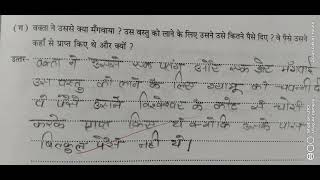 (ग) वक्ता ने उससे क्या मँगवाया ? उस वस्तु को लाने के लिए उसने उसे कितने पैसे दिए ? वे पैसे उसने
कहाँ से प्राप्त किए थे और क्यों ?
उत्तर- वक्ता ने उससे एक पतंग और एक डोर मँगवाई
उस वस्तु को लाने के लिए श्यामू को चवन्नी दी
वे पैसे उसने विश्वेश्वर के कोट से चोरी
करके प्राप्त किए थे क्योंकि उसके पास
बिल्कुल पैसे नहीं थे।